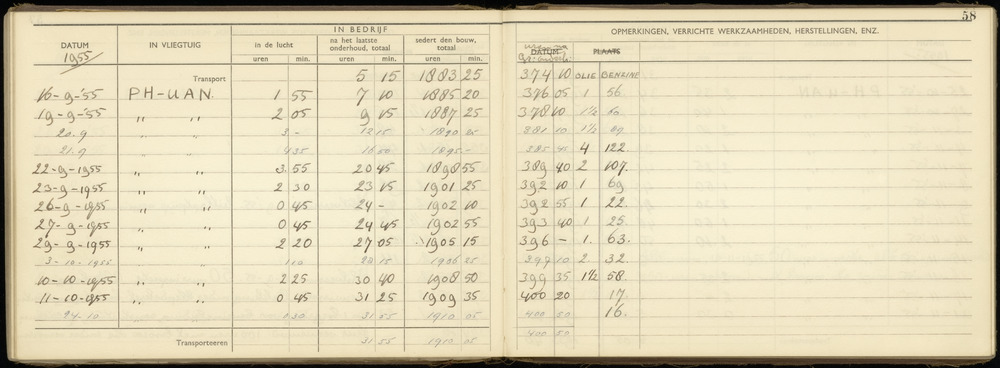 58
IN BEDRIJF
OPMERKINGEN, VERRICHTE WERKZAAMHEDEN, HERSTELLINGEN, ENZ.
DATUM
1955
IN VLIEGTUIG
in de lucht
na het laatste onderhoud, totaal
sedert den bouw, totaal
DATUM PLAATS
uren min. uren min. uren min.
Transport 5 15 1883 25 374 10 OLIE BENZINE
16-9-'55 PH-UAN. 1 55 7 10 1885 20 376 05 1 56
19-9-'55 " " 2 05 9 15 1887 25 378 10 1½
20.9 " " 3 - 12 15 1890 25 381 10 1½
21.9 " " 4 35 16 50 1895 - 385 45 4 122.
22-9-1955 " " 3.55 20 45 1898 55 389 40 2 107.
23-9-1955 " " 2 30 23 15 1901 25 392 10 1 69
26-9-1955 " " 0 45 24 - 1902 10 392 55 1 22.
27-9-1955 " " 0 45 24 45 1902 55 393 40 1. 25.
29-9-1955 " " 2 20 27 05 1905 15 396 - 1. 63.
3-10-1955 " 1 10 28 15 1906 25 397 10 2. 32.
10-10-1955 " " 2 25 30 40 1908 50 399 35 1½ 58.
11-10-1955 " " 0 45 31 25 1909 35 400 20 17.
24-10 " " 0 30 31 55 1910 05 400 50 16.
Transporteeren 31 55 1910 05 400 50